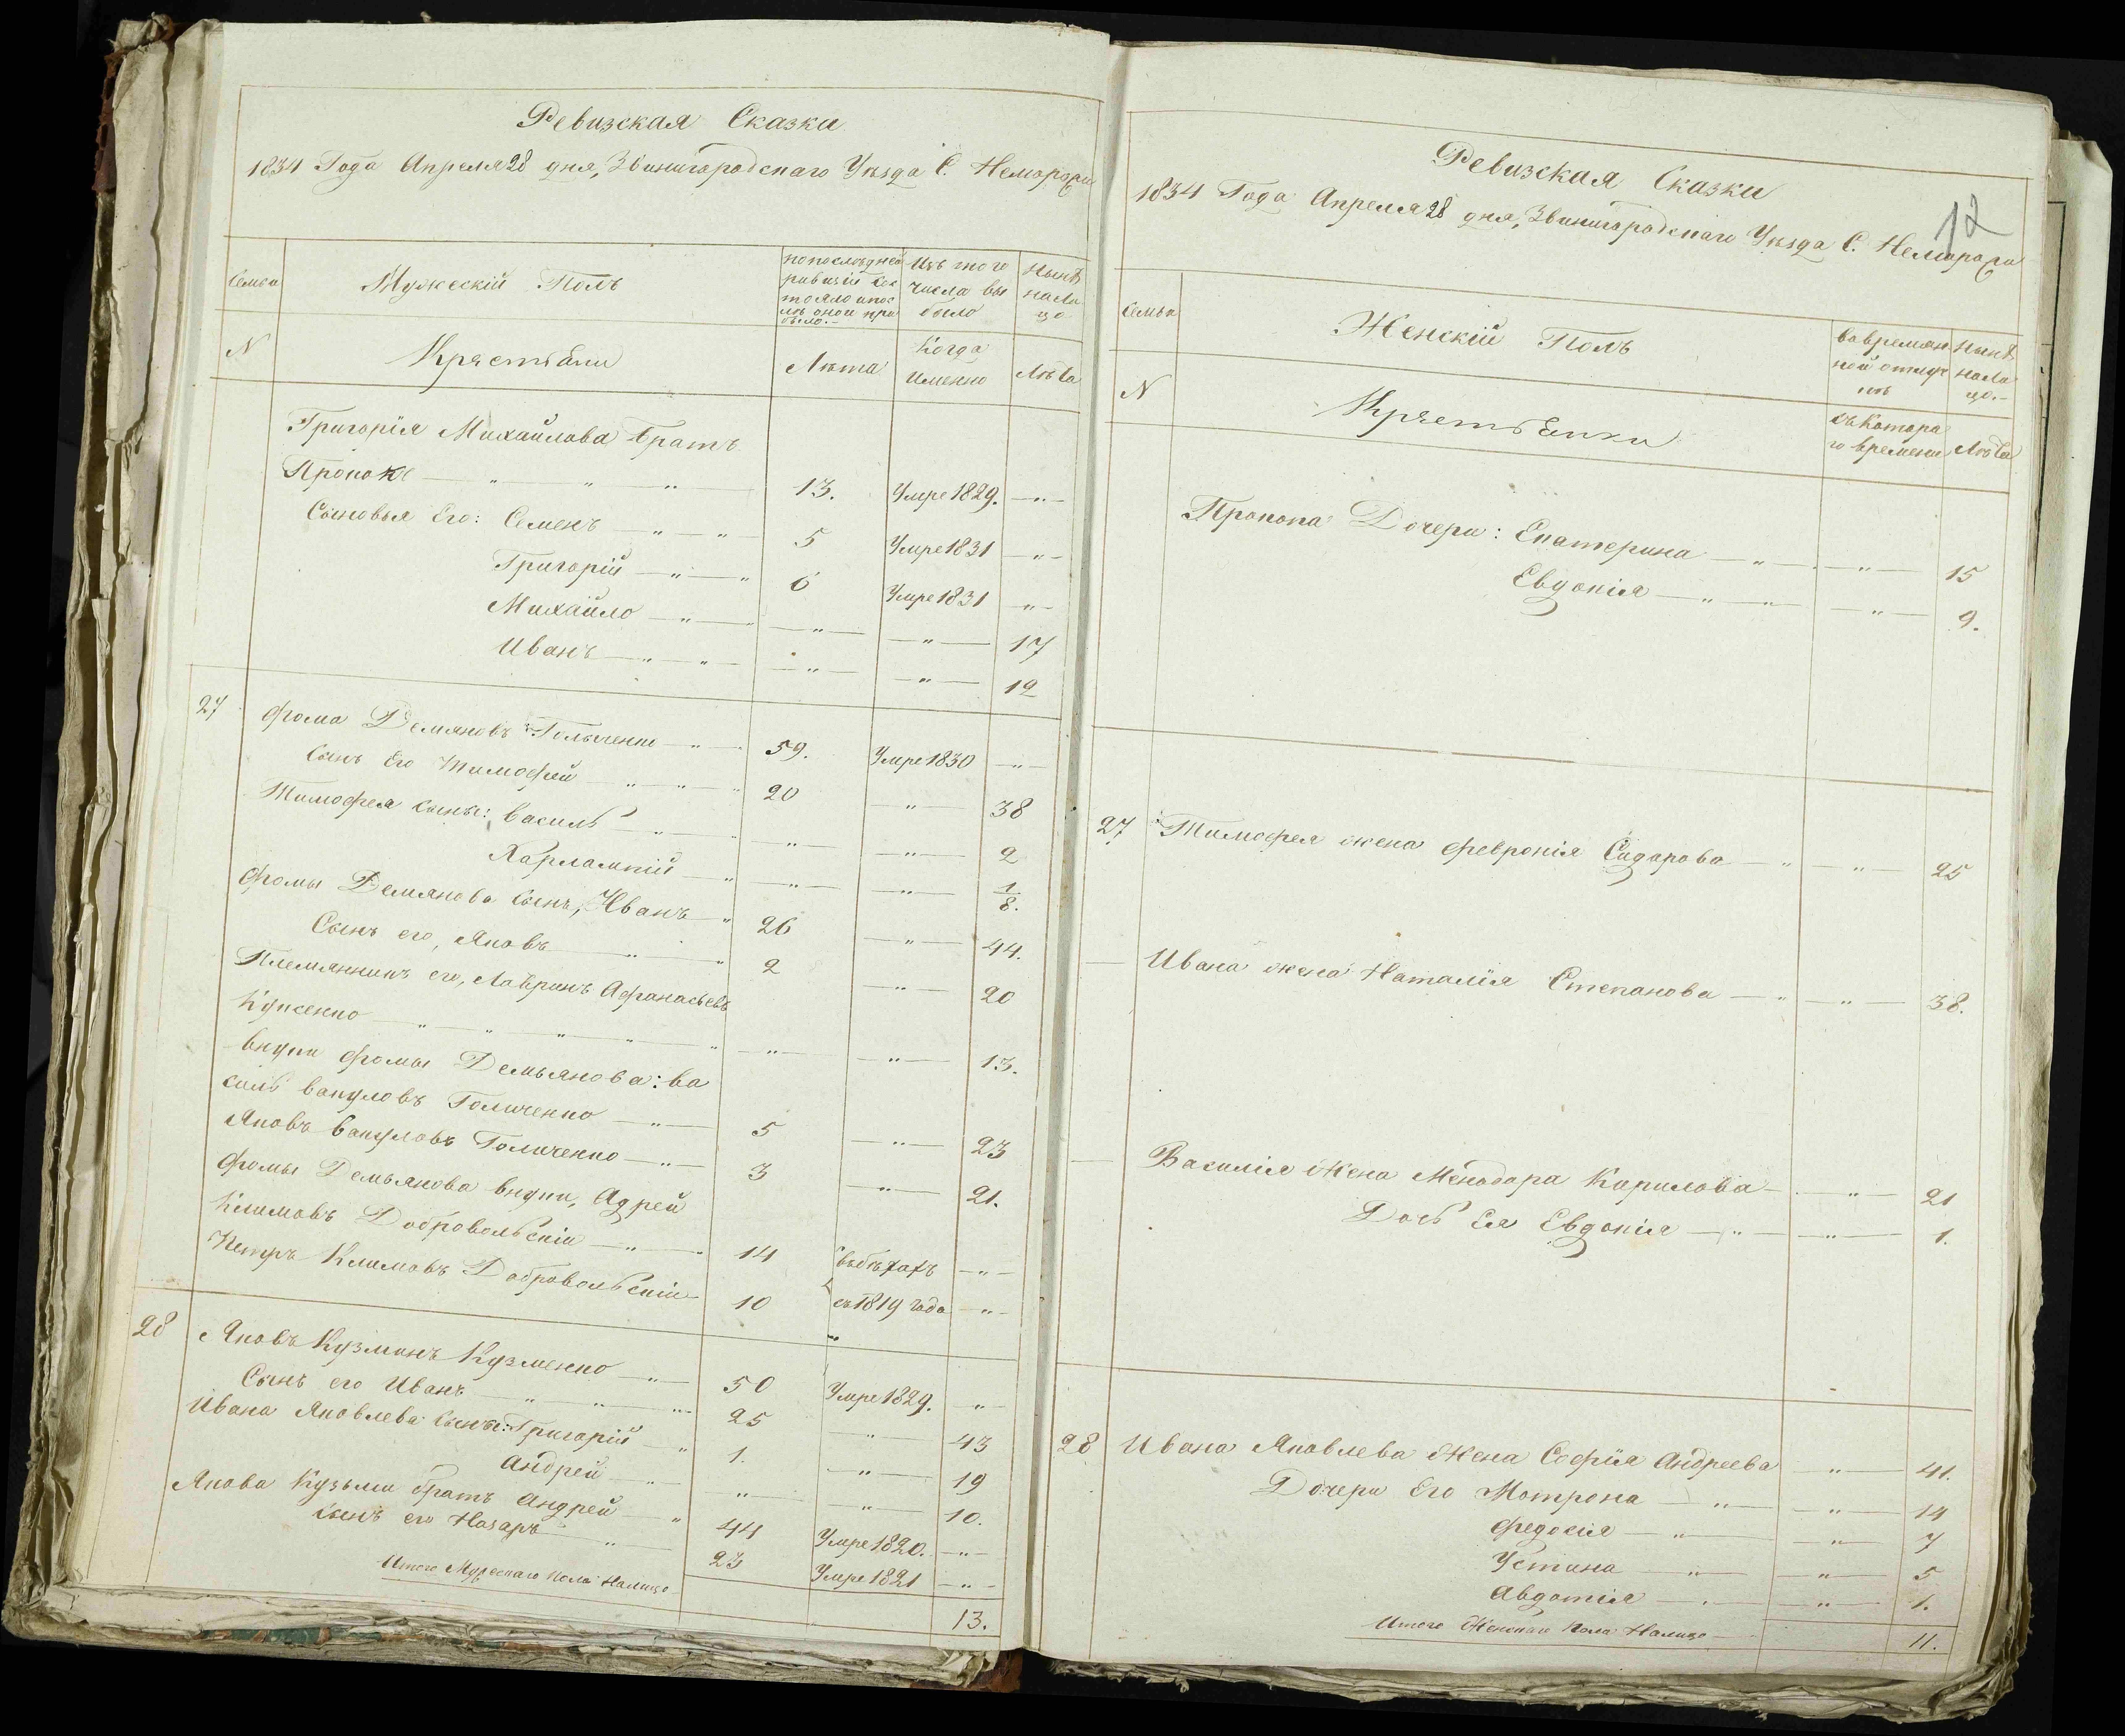 Ревизская Сказка
1834 Года Апреля 28 дня, Звинигородскаго Уѣзда С. Неморожи
Семьи Мужескій Полъ
по последней ревизіи состояло и после оной прибыло.
Изъ того числа выбыло
Нынѣ на лицо
N Крестьяни Лѣта Когда именно Лѣта
Григорія Михайлова Братъ
Прокопъ — " — " — " — 13. Умре 1829. — " —
Сыновья Его: Семенъ — " — " — 5 Умре 1831 — " —
Григорій — " — " 6 Умре 1831 — " —
Михайло — " — " — " — " — 17
Иванъ — " — " — " — " — 12
27 Фома Демяновъ Голиченко — " — 59. Умре 1830 — " —
Сынъ Его Тимофей — " — " — " 20 — " — 38
Тимофея сыны: Василь — " — " — " — " — 2
Харлампій — " — " — " — 1/8.
Фомы Демянова сынъ, Иванъ — " 26 — " — 44.
Сынъ его, Яковъ — " — " 2 — " — 20
Племянникъ его, Лавринъ Афанасьевъ
— " — " — " — " — " — " — " — 13.
внуки Фомы Демьянова: Ва
силь Вакуловъ Голиченко — " — 5 — " — 23
Яковъ Вакуловъ Голиченко — " — 3 — " — 21.
Фомы Демьянова внуки, Адрей
Климовъ Добровольскій — " — " 14 въ бѣгахъ — " —
Петръ Климовъ Добровольскій — 10 съ 1819 года — " —
28 Яковъ Кузминъ Кузменко — " — 50 Умре 1829. — " —
Сынъ его Иванъ — " — " — " 25 — " — 43
Ивана Яковлева сыны: Григорій — " 1. — " — 19
Андрей — " — " — " — 10.
Якова Кузьми братъ Андрей — " 44 Умре 1820. — " —
Сынъ его Назаръ — " — 23 Умре 1821 — " —
Итого Мужескаго пола Налицо 13.
12
Ревизская Сказки
1834 Года Апреля 28 дня, Звинигородскаго Уѣзда С. Неморожи
Семьи Женскій Полъ
во времянной отлучкѣ
Нынѣ на лицо.
N Крестьянки съ котораго времени Лѣта
Прокопа Дочери: Екатерина — " — " — 15
Евдокія — " — " — " — 9.
27 Тимофея жена Февронія Сидорова — " — " — 25
— Ивана жена Наталія Степанова — " — " — 38.
— Василія Жена Минодора Кирилова — " — 21
Дочь Ея Евдокія — " — " — 1.
28 Ивана Яковлева Жена Софія Андреева — " — 41.
Дочери Его Мотрона — " — " — 14
Федосія — " — " — 7
Устина — " — " — 5
Авдотія — " — " — 1.
Итого Женскаго пола Налицо 11.